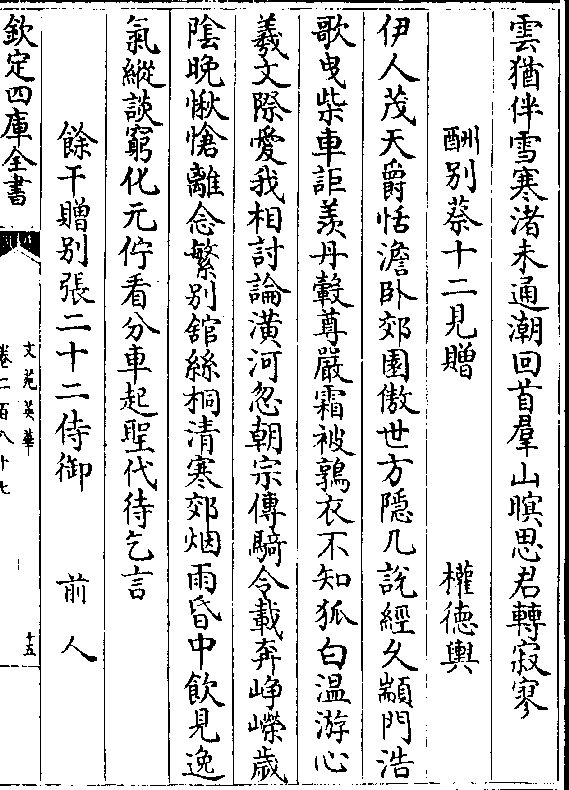 雲猶伴雪寒渚未通潮回首羣山暝思君轉寂寥
酬別蔡十二見贈 權徳輿
伊人茂天爵恬澹卧郊園傲世方隱几說經久顓門浩
歌曳柴車詎羨丹轂尊嚴霜被鶉衣不知狐白温游心
羲文際愛我相討論潢河忽朝宗傳騎令載奔崢嶸歳
隂晚愀愴離念繁别舘絲桐清寒郊烟雨昏中飲見逸
氣縱談窮化元佇看分車起聖代待乞言
餘干贈别張二十二侍御 前人
欽定四庫全書
文苑英華
卷二百八十七
十五